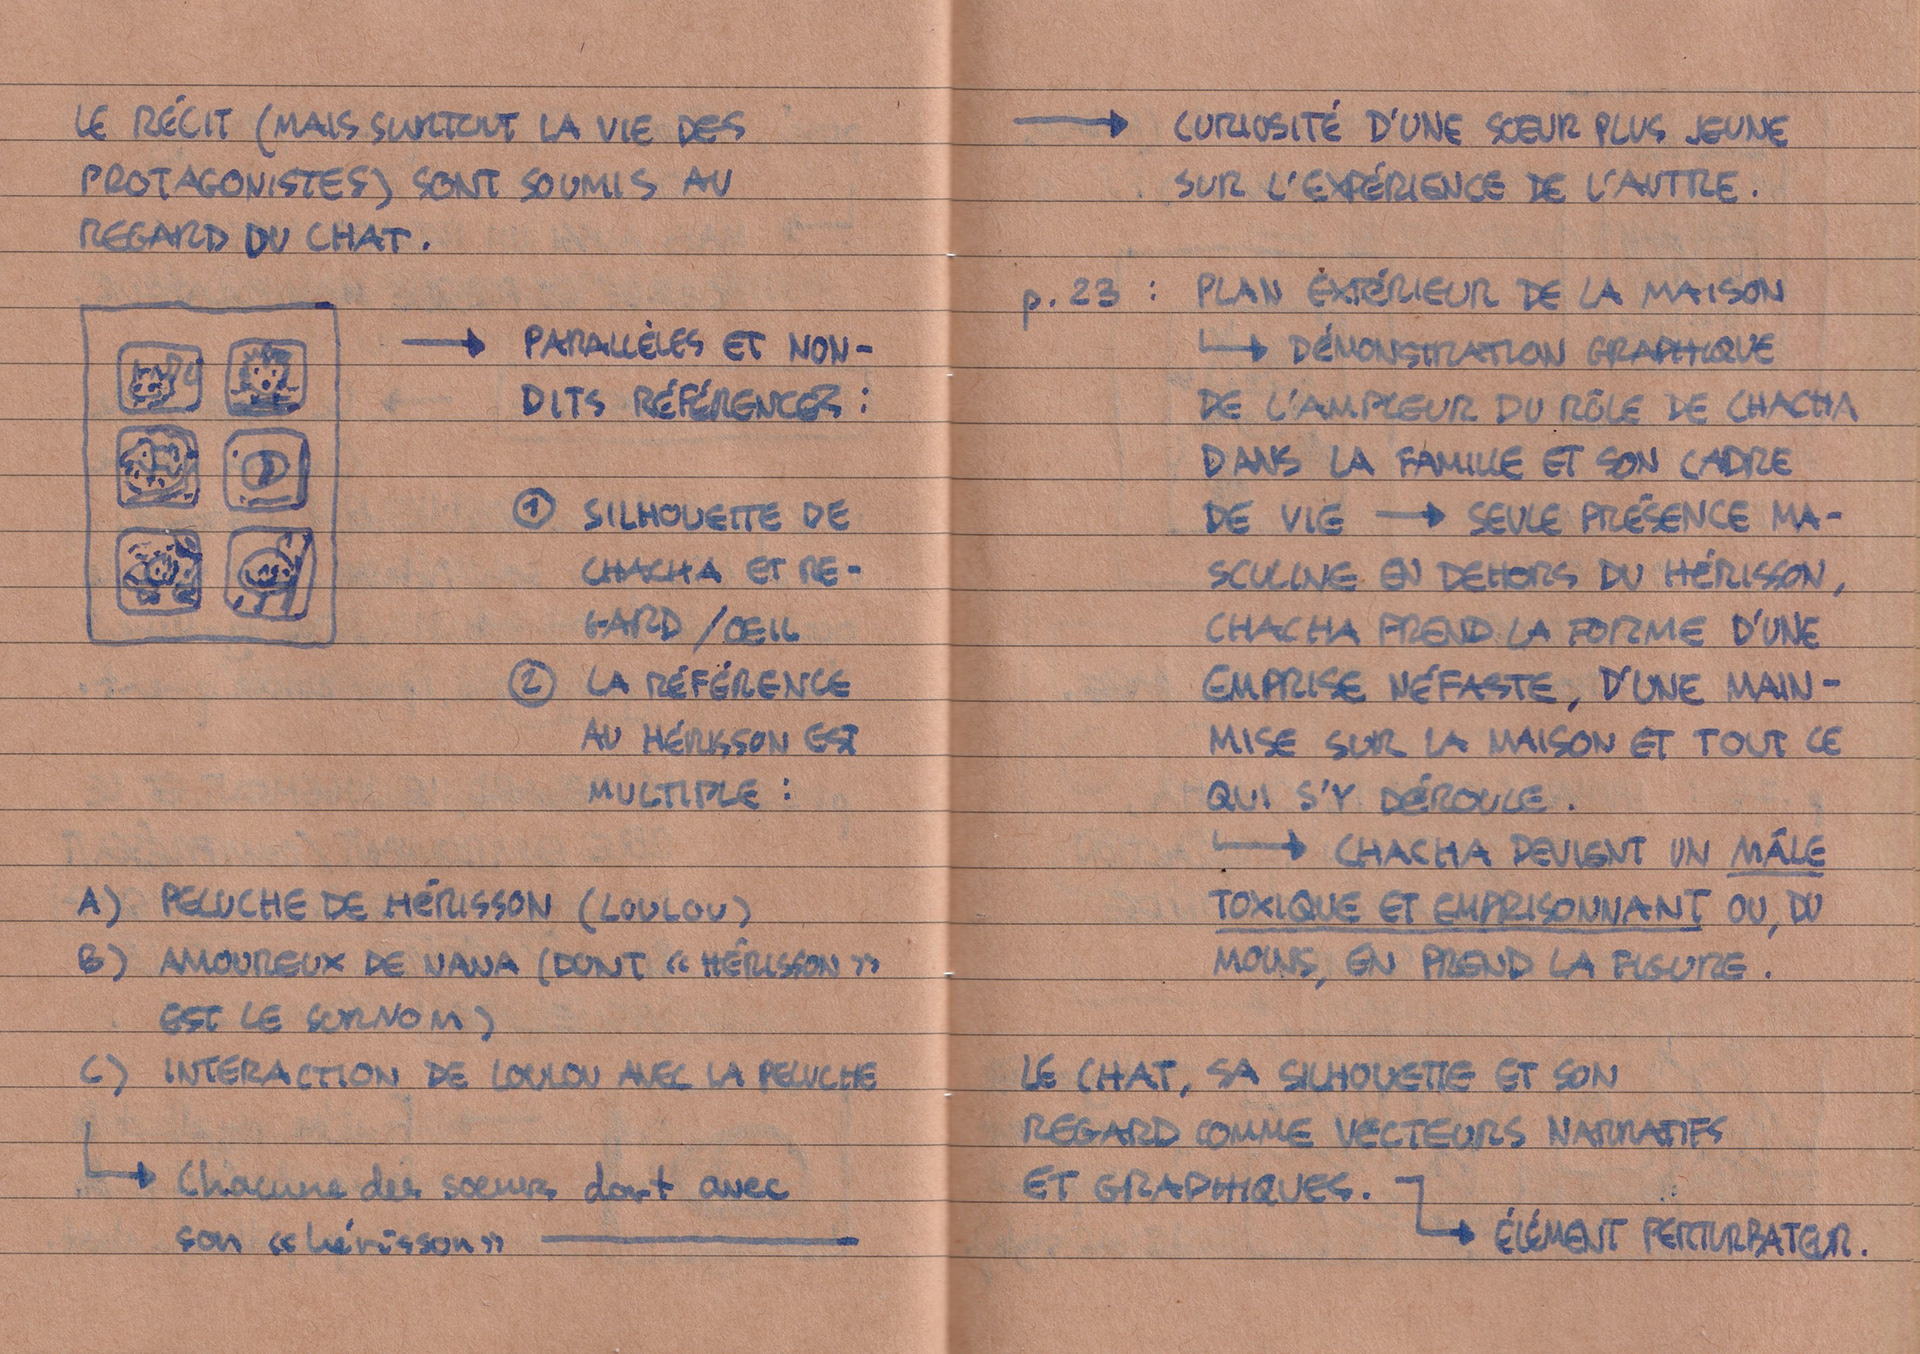 LE RÉCIT (MAIS SURTOUT LA VIE DES
PROTAGONISTES) SONT SOUMIS AU
REGARD DU CHAT.
→ PARALLÈLES ET NON-
DITS RÉFÉRENCÉS :
① SILHOUETTE DE
CHACHA ET RE-
GARD / ŒIL
② LA RÉFÉRENCE
AU HÉRISSON EST
MULTIPLE :
A) PELUCHE DE HÉRISSON (LOULOU)
B) AMOUREUX DE NANA (DONT « HÉRISSON »
EST LE SURNOM)
C) INTERACTION DE LOULOU AVEC LA PELUCHE
↳ Chacune des sœurs dort avec
son « hérisson »
→ CURIOSITÉ D'UNE SŒUR PLUS JEUNE
SUR L'EXPÉRIENCE DE L'AUTRE.
p. 23 : PLAN EXTÉRIEUR DE LA MAISON
↳ DÉMONSTRATION GRAPHIQUE
DE L'AMPLEUR DU RÔLE DE CHACHA
DANS LA FAMILLE ET SON CADRE
DE VIE → SEULE PRÉSENCE MA-
SCULINE EN DEHORS DU HÉRISSON,
CHACHA PREND LA FORME D'UNE
EMPRISE NÉFASTE, D'UNE MAIN-
MISE SUR LA MAISON ET TOUT CE
QUI S'Y DÉROULE.
↳ CHACHA DEVIENT UN MÂLE
TOXIQUE ET EMPRISONNANT OU, DU
MOINS, EN PREND LA FIGURE.
LE CHAT, SA SILHOUETTE ET SON
REGARD COMME VECTEURS NARRATIFS
ET GRAPHIQUES.
↳ ÉLÉMENT PERTURBATEUR.